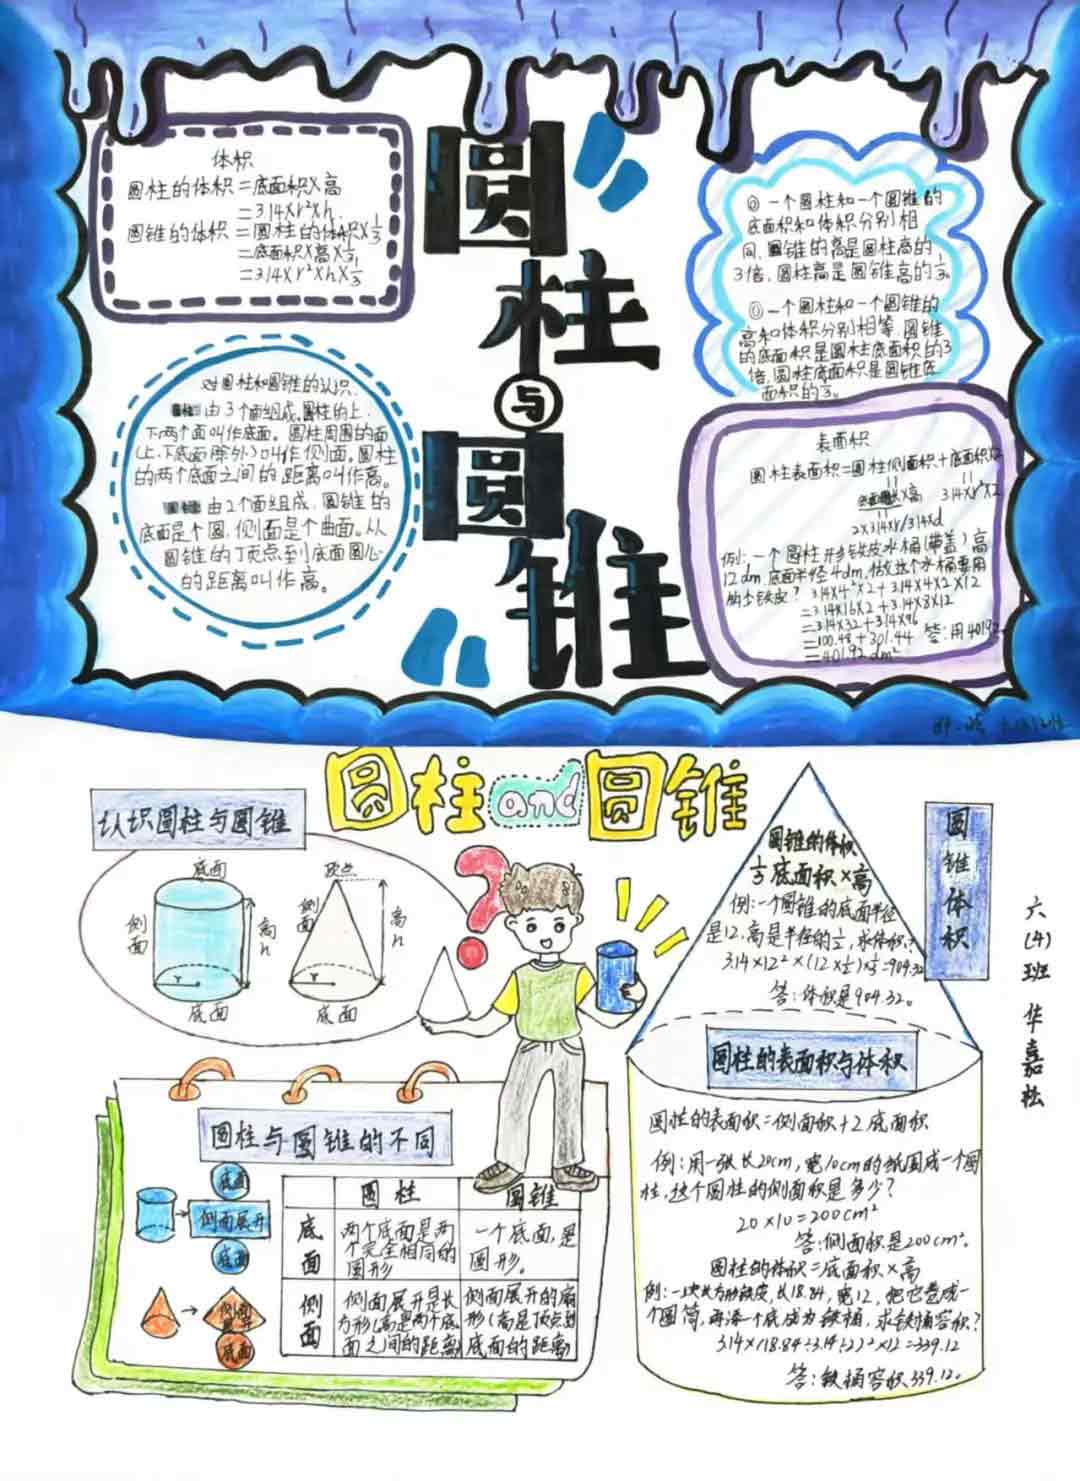 体积
圆柱的体积=底面积×高
=3.14×r²×h
圆锥的体积=圆柱的体积×1/3
=底面积×高×1/3
=3.14×r²×h×1/3
对圆柱和圆锥的认识
圆柱由3个面组成,圆柱的上.
下两个面叫作底面。圆柱周围的面
(上.下底面除外)叫作侧面。圆柱
的两个底面之间的距离叫作高。
圆锥由2个面组成,圆锥的
底面是个圆,侧面是个曲面。从
圆锥的顶点到底面圆心
的距离叫作高。
圆柱
与
圆锥
◎一个圆柱和一个圆锥的
底面积和体积分别相
同,圆锥的高是圆柱高的
3倍,圆柱高是圆锥高的1/3。
◎一个圆柱和一个圆锥的
高和体积分别相等,圆锥
的底面积是圆柱底面积的3
倍,圆柱底面积是圆锥底
面积的1/3。
表面积
圆柱表面积=圆柱侧面积+底面积×2
底面周长×高 3.14×r²×2
2×3.14×r/3.14×d
例:一个圆柱形铁皮水桶(带盖)高
12dm,底面半径4dm,做这个水桶要用
多少铁皮? 3.14×4²×2+3.14×4×2×12
=3.14×16×2+3.14×8×12
=3.14×32+3.14×96
=100.48+301.44 答:用401.92
=401.92dm²
圆柱and圆锥
认识圆柱与圆锥
底面 顶点
侧面 高h 侧面 高h
r r
底面 底面
圆锥的体积
1/3底面积×高
例:一个圆锥的底面半径
是12,高是半径的1/2,求体积?
3.14×12²×(12×1/2)×1/3=904.32
答:体积是904.32。
圆锥体积
六(4)班 华嘉松
圆柱与圆锥的不同
底面
侧面展开
底面
底面
圆柱 圆锥
底面 两个底面是两个完全相同的圆形 一个底面,是圆形。
侧面 侧面展开是长方形(高是两个底面之间的距离) 侧面展开的扇形(高是顶点到底面的距离)
圆柱的表面积与体积
圆柱的表面积=侧面积+2底面积
例:用一张长20cm,宽10cm的纸围成一个圆
柱,这个圆柱的侧面积是多少?
20×10=200cm²
答:侧面积是200cm²。
圆柱的体积=底面积×高
例:一块长方形铁皮,长18.84,宽12,把它卷成一
个圆筒,再添个底成为铁桶,求铁桶容积?
3.14×(18.84÷3.14÷2)²×12=339.12
答:铁桶容积339.12。